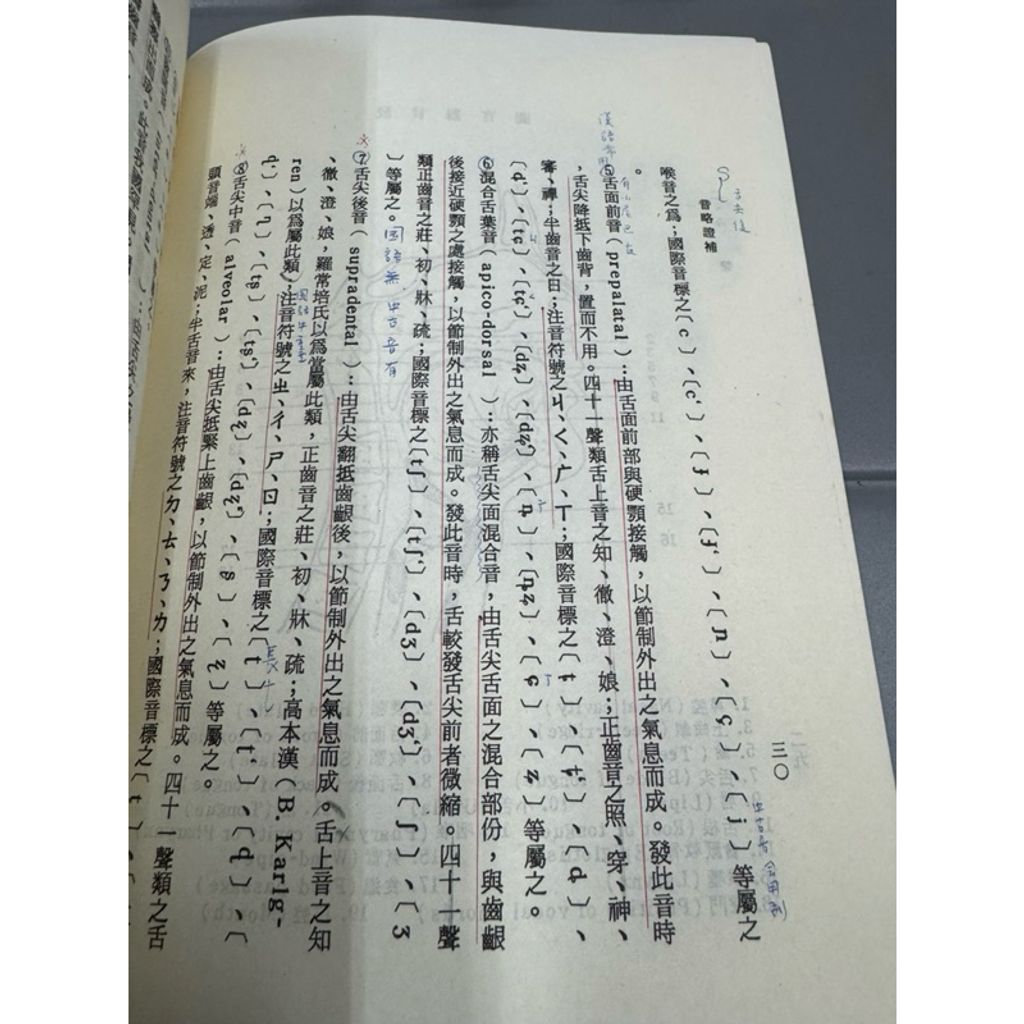 音略證補
三〇
喉音之爲；國際音標之〔c〕、〔c‘〕、〔ɟ〕、〔ɟ‘〕、〔ɲ〕、〔ç〕、〔j〕等屬之
。
⑤舌面前音（prepalatal）：由舌面前部與硬顎接觸，以節制外出之氣息而成。發此音時
，舌尖降抵下齒背，置而不用。四十一聲類舌上音之知、徹、澄、娘；正齒音之照、穿、神、
審、禪；半齒音之日；注音符號之ㄐ、ㄑ、ㄏ、ㄒ；國際音標之〔ȶ〕、〔ȶ‘〕、〔ȡ〕、
〔ȡ‘〕、〔tɕ〕、〔tɕ‘〕、〔dʑ〕、〔dʑ‘〕、〔ȵ〕、〔ȵʑ〕、〔ɕ〕、〔ʑ〕等屬之。
⑥混合舌葉音（apico-dorsal）：亦稱舌尖面混合音，由舌尖舌面之混合部份，與齒齦
後接近硬顎之處接觸，以節制外出之氣息而成。發此音時，舌較發舌尖前者微縮。四十一聲
類正齒音之莊、初、牀、疏；國際音標之〔tʃ〕、〔tʃ‘〕、〔dʒ〕、〔dʒ‘〕、〔ʃ〕、〔ʒ
〕等屬之。
國語無 中古音有
⑦舌尖後音（supradental）：由舌尖翻抵齒齦後，以節制外出之氣息而成。舌上音之知
、徹、澄、娘，羅常培氏以爲當屬此類，正齒音之莊、初、牀、疏；高本漢（B. Karlg-
ren）以爲屬此類，注音符號之ㄓ、ㄔ、ㄕ、ㄖ；國際音標之〔ʈ〕、〔ʈ‘〕、〔ɖ〕、〔
ɖ‘〕、〔ɳ〕、〔tʂ〕、〔tʂ‘〕、〔dʐ〕、〔dʐ‘〕、〔ʂ〕、〔ʐ〕等屬之。
⑧舌尖中音（alveolar）：由舌尖抵緊上齒齦，以節制外出之氣息而成。四十一聲類之舌
頭音端、透、定、泥；半舌音來，注音符號之ㄉ、ㄊ、ㄋ、ㄌ；國際音標之〔t〕、